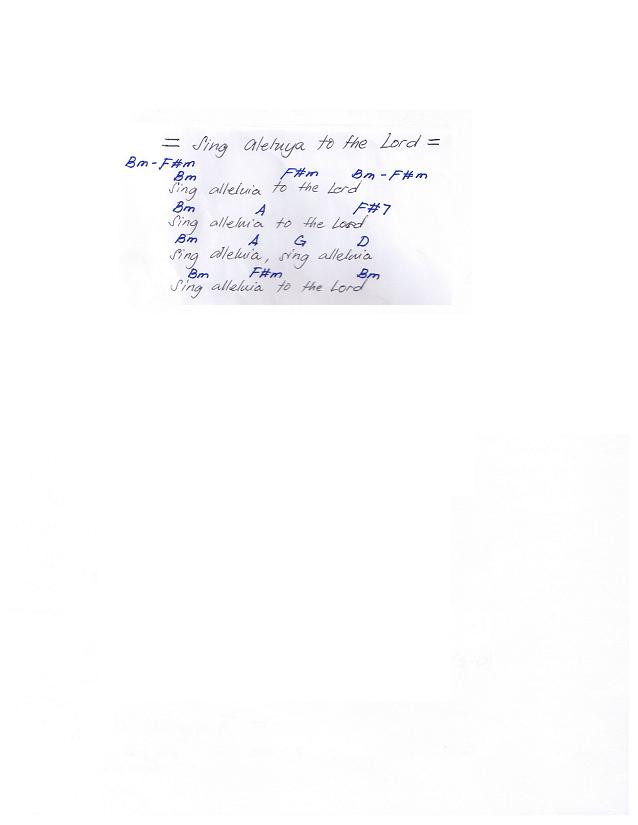 = Sing aleluya to the Lord =
Bm - F#m
Bm F#m Bm - F#m
Sing alleluia to the Lord
Bm A F#7
Sing alleluia to the Lord
Bm A G D
Sing alleluia, sing alleluia
Bm F#m Bm
Sing alleluia to the Lord